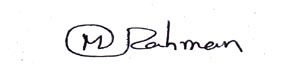 M Rahman